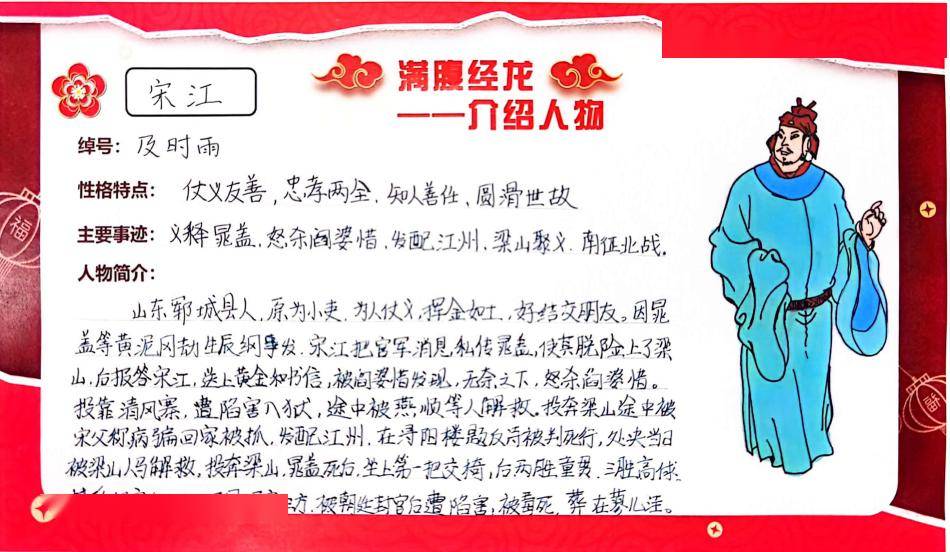 满腹经龙
——介绍人物
宋江
绰号：及时雨
性格特点：仗义友善，忠孝两全，知人善任，圆滑世故
主要事迹：义释晁盖，怒杀阎婆惜，发配江州，梁山聚义，南征北战。
人物简介：
山东郓城县人，原为小吏，为人仗义，挥金如土，好结交朋友。因晁
盖等黄泥冈劫生辰纲事发，宋江把官军消息私传晁盖，使其脱险上了梁
山，后报答宋江，送上黄金和书信，被阎婆惜发现，无奈之下，怒杀阎婆惜。
投靠清风寨，遭陷害入狱，途中被燕顺等人解救。投奔梁山途中被
宋父称病骗回家被抓，发配江州。在浔阳楼题反诗被判死行，处央当日
被梁山人马解救，投奔梁山，晁盖死后，坐上第一把交椅，台两胜童贯，三胜高俅
方，被朝廷封官后遭陷害，被毒死，葬在蓼儿洼。
福
福